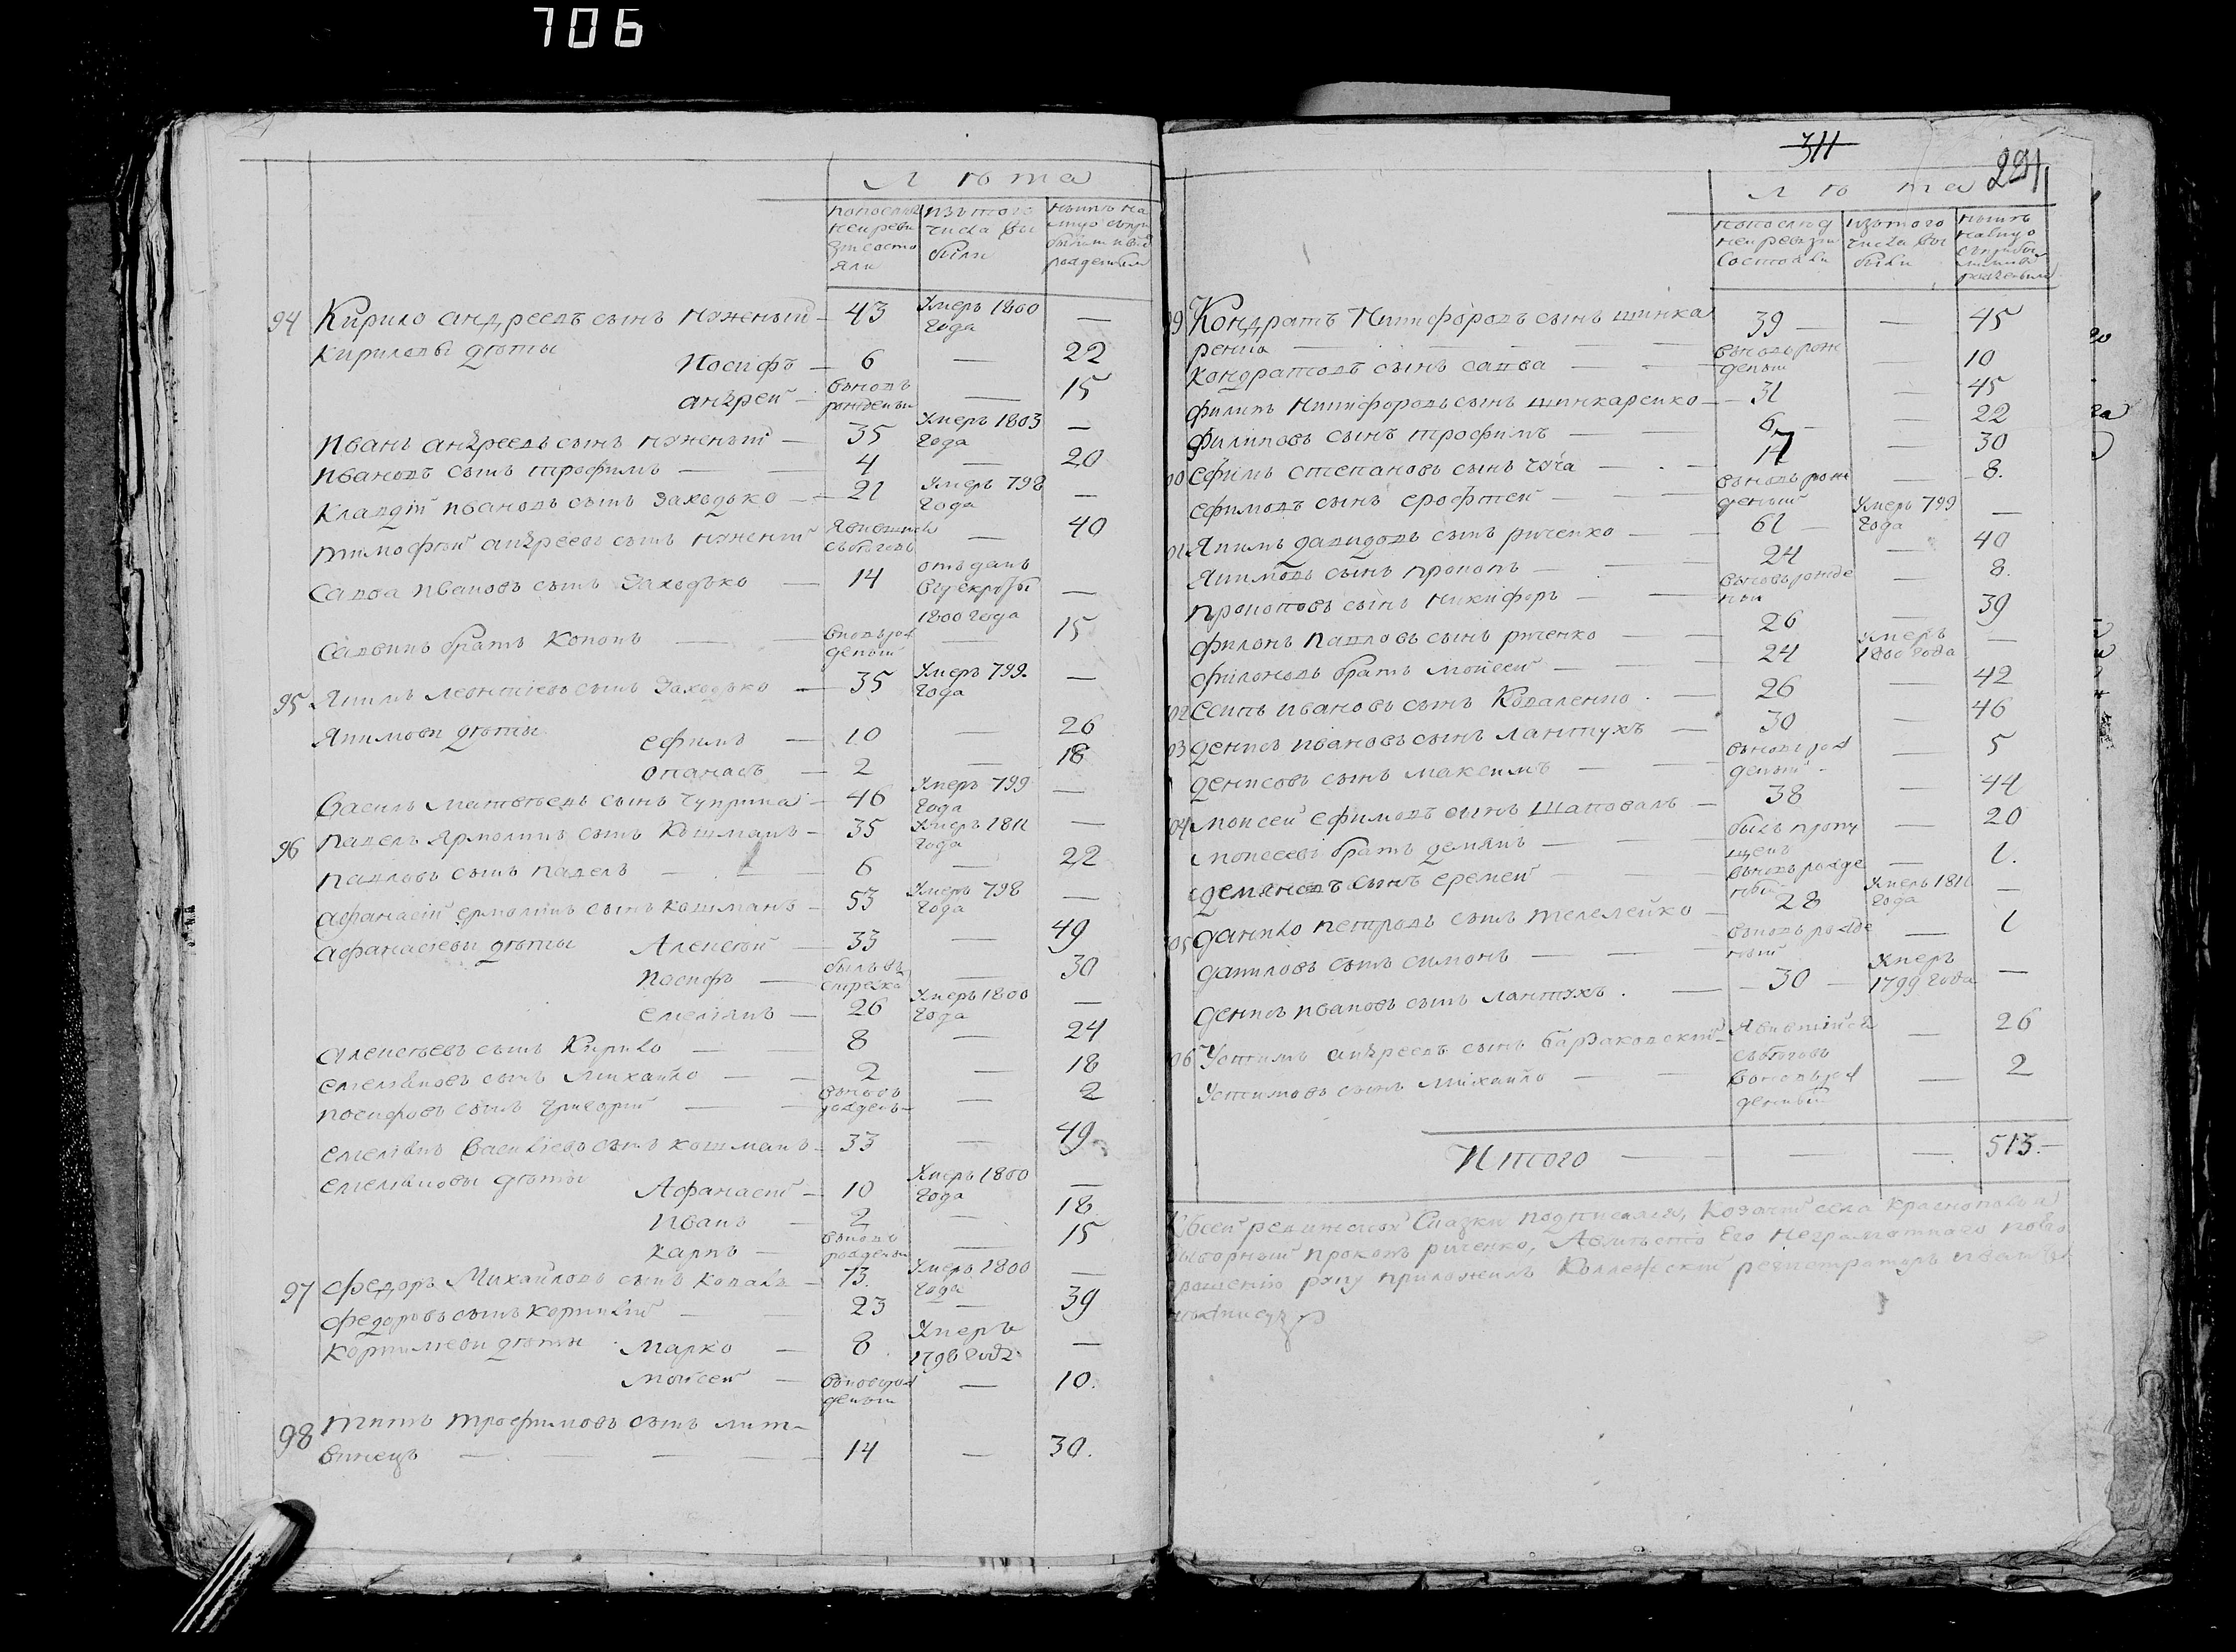 706
Лѣта
по послѣд
ней реви
зіи состо
яли
изъ того
числа вы
были
нынѣ на
лицо
94 Кирило андреевъ сынъ нуженый — 43 Умеръ 1800 —
года
Кириловы дѣти
Иосифъ — 6 — 22
андрей — вновь — 15
рожденый
Иванъ андреевъ сынъ нуженый — 35 Умеръ 1803 —
года
Ивановъ сынъ трофимъ — 4 — 20
Клавдій ивановъ сынъ Заходько — 21 Умеръ 798 —
года
тимофѣй андреевъ сынъ нуженый — 40
съ бѣговъ
Савва ивановъ сынъ Заходько — 14 отъ данъ —
в рекруты
1800 года
Саввинъ братъ Кононъ — вновь рож — 15
деный
95 Якимъ леонтіевъ сынъ Заходько — 35 Умеръ 799. —
года
Якимови дѣти
ефимъ — 10 — 26
опанасъ — 2 — 18
Василь Матвѣевъ сынъ чуприна — 46 Умеръ 799 —
года
96 павелъ Ярмолинъ сынъ Кошманъ — 35 Умеръ 1811 —
года
павловъ сынъ павелъ — 6 — 22
афанасій ермолинъ сынъ кошманъ — 53 Умеръ 798 —
года
афанасіеви дѣти Алексѣй — 33 — 49
иосифъ — былъ въ — 30
емеліянъ — 26 Умеръ 1800 —
года
алексѣевъ сынъ Кирило — 8 — 24
емеліановъ сынъ Михайло — 2 — 18
иосифовъ сынъ григорій — вновь — 2
рожден
емеліянъ Василіевъ сынъ кошманъ — 33 — 49
емеліановы дѣти
Афанасій — 10 Умеръ 1800 —
года
Иванъ — 2 — 18
карпъ — вновь — 15
рожденый
97 федоръ Михайловъ сынъ коваль — 73. Умеръ 1800 —
года
федоровъ сынъ корнилій — 23 — 39
корнилиеви дѣти Марко — 8 Умеръ —
1798 года
Мойсей — вновь рож — 10.
деный
98 титъ трофимовъ сынъ лит-
винецъ — 14 — 30.
311
291
Лѣта
по послѣд
ней ревизіи
состояли
изъ того
числа вы
были
нынѣ
налицо
99 Кондратъ Никифоровъ сынъ шинка
ренко — 39 — 45
кондратовъ сынъ савва — вновь рож — 10
деный
филипъ никифоровъ сынъ шинкаренко — 31 — 45
филиповъ сынъ трофимъ — 6 — 22
00 ефимъ степановъ сынъ — 17 — 30
ефимовъ сынъ ерофтей — вновь рож — 8.
деный
01 Якимъ давидовъ сынъ риченко — 61 Умеръ 799 —
года
Якимовъ сынъ прокопъ — 24 — 40
прокоповъ сынъ никифоръ — вновь рожде — 8.
ный
филонъ павловъ сынъ риченко — 26 — 39
філоновъ братъ мойсей — 24 Умеръ —
1800 года
02 есипъ ивановъ сынъ Коваленко — 26 — 42
03 денисъ ивановъ сынъ лантухъ — 30 — 46
денисовъ сынъ максимъ — вновь рож — 5
деный
04 мойсей ефимовъ сынъ шаповалъ — 38 — 44
мойсеевъ братъ демянъ — былъ пропу — 20
щенъ
демяновъ сынъ еремей — вновь рожде — 1.
ный
05 данило петровъ сынъ телелейко — 28 Умеръ 1811 —
года
даниловъ сынъ симонъ — вновь рожде — 1
ный
денисъ ивановъ сынъ лантухъ — 30 Умеръ —
1799 года
06 Устимъ андреевъ сынъ барзаковский — явившійся — 26
съ бѣговъ
Устимовъ сынъ михайло — вновь рож — 2
деный
Итого — — — 513.
К сей ревижской Сказки подписался, Козачій села Краснополья
выборный прокопъ риченко, а вмѣсто Его неграмотного по его
прошению руку приложилъ Коллежский регистраторъ иванъ